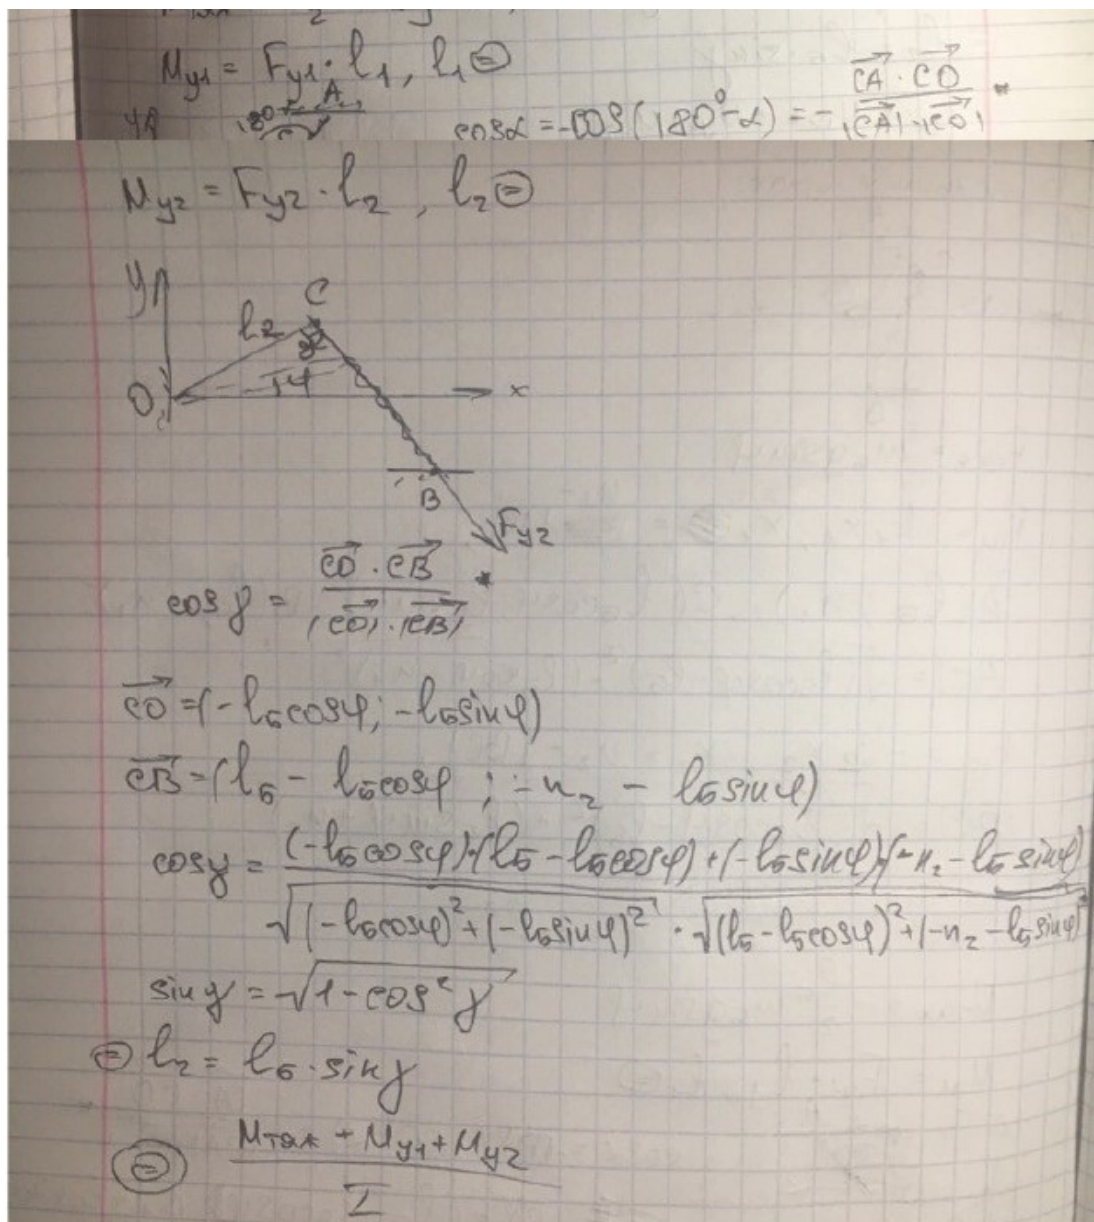 My1 = Fy1 · l1, l1 ⊜
180°
A
cosα = -cos(180° - α) = - (CA · CO) / (|CA| · |CO|) *
My2 = Fy2 · l2, l2 ⊜
y
C
l2
γ
φ
O
x
B
Fy2
cosγ = (CO · CB) / (|CO| · |CB|) *
CO = (-lб cosφ; -lб sinφ)
CB = (lб - lб cosφ; -n2 - lб sinφ)
cosγ = ((-lб cosφ)·(lб - lб cosφ) + (-lб sinφ)·(-n2 - lб sinφ)) / (√((-lб cosφ)² + (-lб sinφ)²) · √((lб - lб cosφ)² + (-n2 - lб sinφ)²))
sinγ = √(1 - cos²γ)
⊜ l2 = lб · sinγ
⊜ (Mтяж + My1 + My2) / I